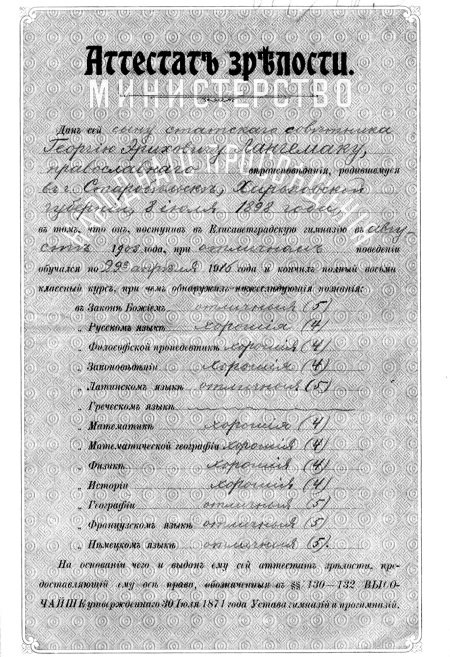 Аттестатъ зрѣлости.
МИНИСТЕРСТВО
Данъ сей сыну статскаго совѣтника
Георгію Эриховичу Лангемаку,
православнаго вѣроисповѣданія, родившемуся
въ г. Старобѣльскѣ, Харьковской
губерніи, 8 іюля 1898 года,
въ томъ, что онъ, поступивъ въ Елисаветградскую гимназію въ авгу-
стѣ 1908 года, при отличномъ поведеніи
обучался по 29е апрѣля 1916 года и кончилъ полный восьми
классный курсъ, при чемъ обнаружилъ нижеслѣдующія познанія:
въ Законѣ Божіемъ отличныя (5)
„ Русскомъ языкѣ хорошія (4)
„ Философской пропедевтикѣ хорошія (4)
„ Законовѣдѣніи хорошія (4)
„ Латинскомъ языкѣ отличныя (5)
„ Греческомъ языкѣ
„ Математикѣ хорошія (4)
„ Математической географіи хорошія (4)
„ Физикѣ хорошія (4)
„ Исторіи хорошія (4)
„ Географіи отличныя (5)
„ Французскомъ языкѣ отличныя (5)
„ Нѣмецкомъ языкѣ отличныя (5).
На основаніи чего и выданъ ему сей аттестатъ зрѣлости, пре-
доставляющій ему всѣ права, обозначенныя въ §§ 130—132 ВЫСО-
ЧАЙШЕ утвержденнаго 30 Іюля 1871 года Устава гимназій и прогимназій.